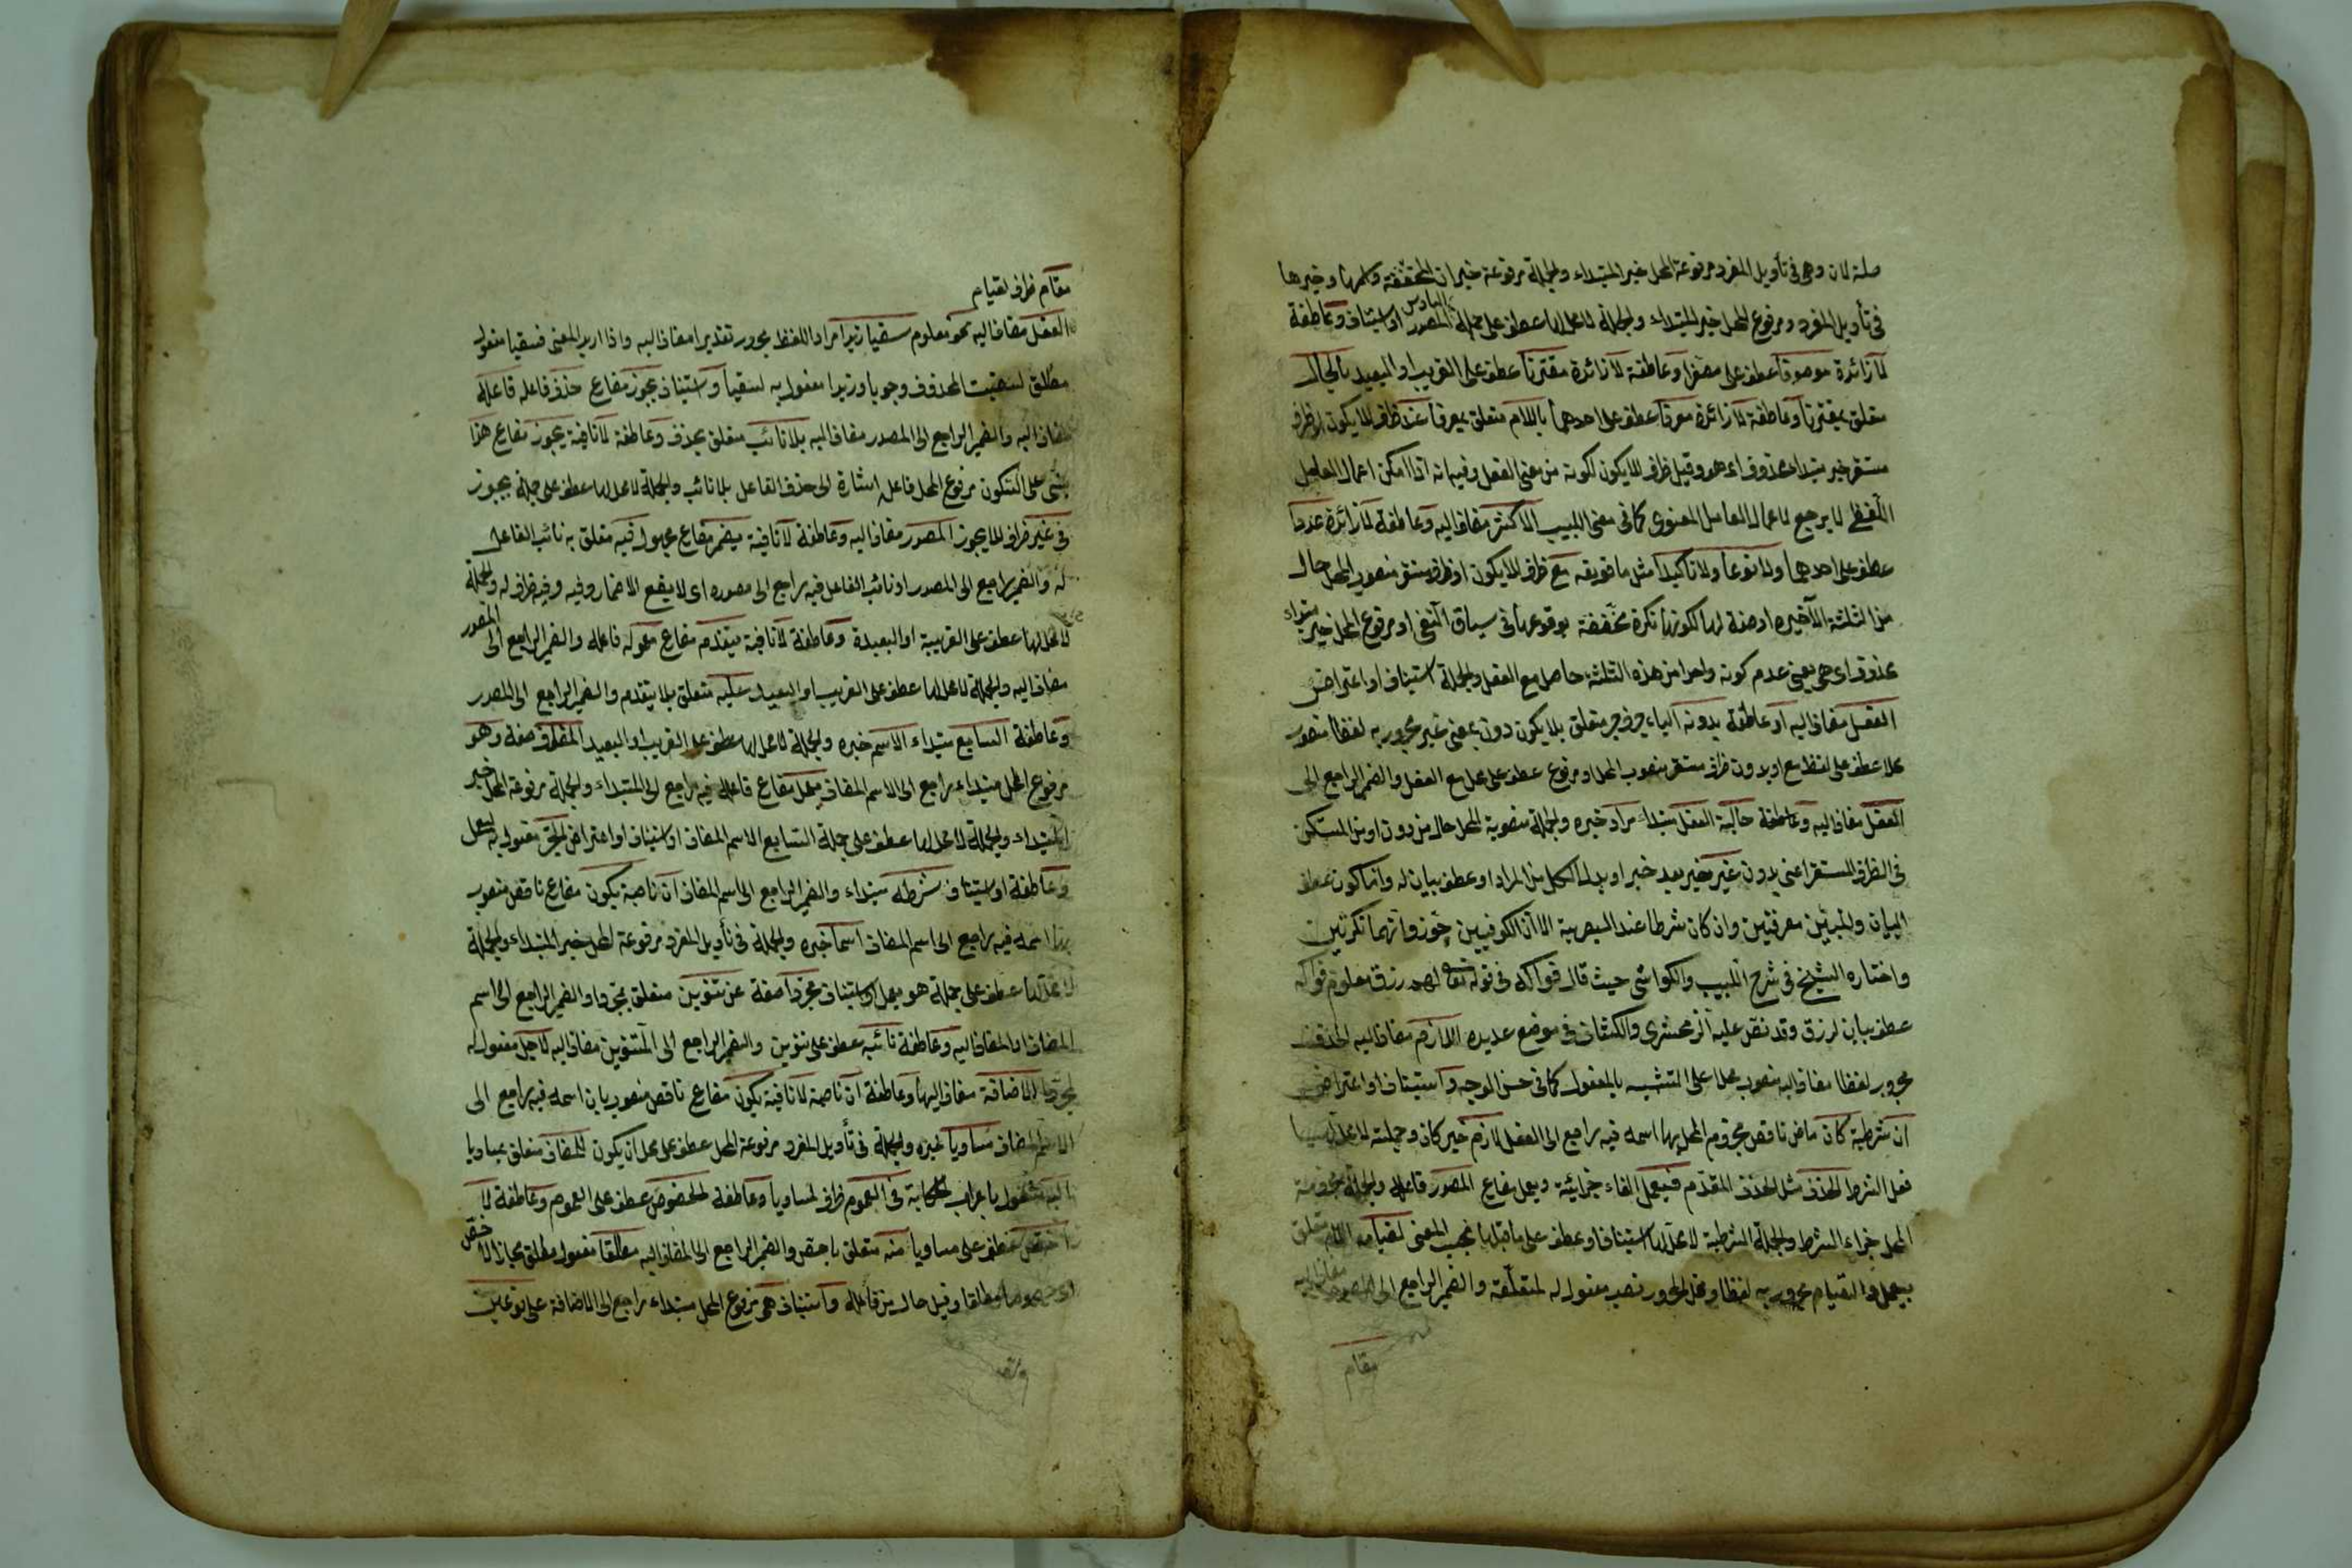 صلة لان وهى فى تأويل المفرد مرفوعة المحل خبر المبتداء والجملة مرفوعة خبر ان المخففة واسمها وخبرها
فى تأويل المفرد ومرفوع المحل خبر المبتداء والجملة لا محل لها عطف على جملة السادس المصدر او استيناف وعاطفة
لا زائدة موصوفا عطف على مصغرا وعاطفة لا زائدة مقترنا عطف على القريب او البعيد بالحال
متعلق بمقترنا وعاطفة لا زائدة معرفا عطف على احدهما باللام متعلق بمعرفا عند ظرف للا يكون او ظرف
مستقر خبر مبتداء محذوف اى هو وقيل ظرف للا يكون لكونه من معنى الفعل وفيه انه اذا امكن اعمال العامل
اللفظى لا يرجع لاعمال العامل المعنوى كما فى معنى اللبيب الاكثر مضاف اليه وعاطفة لا زائدة عددا
عطف على احدهما ولا نوعا ولا تأكيدا مثل ما فويقه مع ظرف للا يكون او ظرف مستقر منصوب المحل حال
من الثلثة الاخيره او صفة لها لكونها نكرة مخففة بوقوعها فى سياق النفى او مرفوع المحل خبر مبتداء
محذوف اى هى يعنى عدم كونه واحدا من هذه الثلثة حاصل مع الفعل والجملة استيناف او اعتراض
الفعل مضاف اليه او عاطفة بدونه الباء حرف جر متعلق بلا يكون دون بمعنى غير مجرور به لفظا منصوب
محلا عطف على لفظ مع او بدون ظرف مستقر منصوب المحل او مرفوع عطف على محل مع الفعل والضمير الراجع الى
الفعل مضاف اليه وعاطفة حالية الفعل مبتداء مراد خبره والجملة منصوبة المحل حال من دون او من المستكن
فى الظرف المستقر اعنى بدون غير خبر بعد خبر او بدل الكل من المراد او عطف بيان له وانما كون عطف
البيان والمبين معرفتين وان كان شرطا عند البصرية الا ان الكوفيين جوزوا انهما نكرتين
واختاره الشيخ فى شرح اللبيب والكواشى حيث قال فواكه فى قوله تعا لهم رزق معلوم فواكه
عطف بيان لرزق وقد نص عليه الزمخشرى والكشاف فى موضع عديده اللازم مضاف اليه الحذف
مجرور لفظا مضاف اليه منصوب محلا على التشبيه بالمفعول كما فى حسن الوجه واستيناف او اعتراض
ان شرطية كان ماض ناقص مجزوم المحل بها اسمه فيه راجع الى الفعل لازم خبر كان وجملته لا محل لها
فعل الشرط الحذف مثل الحذف المقدم فيعمل الفاء جزائية ويعمل مضارع المصدر فاعله والجملة مجزومة
المحل جزاء الشرط والجملة الشرطية لا محل لها استيناف او عطف على ما قبلها بحسب المعنى لقيامه اللام متعلق
بيعمل والقيام مجرور به لفظا ومحل المجرور نصب مفعول له لمتعلقه والضمير الراجع الى المصدر مضاف اليه
مقام
مقام ظرف لقيام
الفعل مضاف اليه نحو معلوم سقيا زيدا مراد اللفظ مجرور تقديرا مضاف اليه واذا اريد المعنى فسقيا مفعول
مطلق لسقيت المحذوف وجوبا وزيدا مفعول به لسقيا واستيناف يجوز مضارع حذف فاعله فاعله
مضاف اليه والضمير الراجع الى المصدر مضاف اليه بلا نائب متعلق بحذف وعاطفة لا نافية يجوز مضارع هذا
مبنى على السكون مرفوع المحل فاعل اشارة الى حذف الفاعل بلا نائب والجملة لا محل لها عطف على جملة يجوز
فى غير ظرف للا يجوز المصدر مضاف اليه وعاطفة لا نافية يضمر مضارع مجهول فيه متعلق به نائب الفاعل
له والضمير راجع الى المصدر او نائب الفاعل فيه راجع الى مصدره اى لا يقع الاضمار وفيه وفيه ظرف له والجملة
لا محل لها عطف على القريبة او البعيدة وعاطفة لا نافية يتقدم مضارع معموله فاعله والضمير الراجع الى المصدر
مضاف اليه والجملة لا محل لها عطف على القريب او البعيد عليه متعلق بلا يتقدم والضمير الراجع الى المصدر
وعاطفة السابع مبتداء الاسم خبره والجملة لا محل لها عطف على القريب او البعيد المضاف صفة وهو
مرفوع المحل مبتداء راجع الى الاسم المضاف يعمل مضارع فاعله فيه راجع الى المبتداء والجملة مرفوعة المحل خبر
المبتداء والجملة لا محل لها عطف على جملة السابع الاسم المضاف او استيناف او اعتراض الجر مفعول به ليعمل
وعاطفة او استيناف شرطه مبتداء والضمير الراجع الى اسم المضاف ان ناصبة يكون مضارع ناقص منصوب
بها اسمه فيه راجع الى اسم المضاف اسما خبره والجملة فى تأويل المفرد مرفوعة المحل خبر المبتداء والجملة
لا محل لها عطف على جملة هو يعمل او استيناف مجردا صفة عن تنوين متعلق بمجردا والضمير الراجع الى اسم
المضاف او المضاف اليه وعاطفة نائبه عطف على تنوين والضمير الراجع الى التنوين مضاف اليه لاجل مفعول له
لمجردا الاضافة مضاف اليها وعاطفة ان ناصبة لا نافية يكون مضارع ناقص منصوب بان اسمه فيه راجع الى
الاسم المضاف مساويا خبره والجملة فى تأويل المفرد مرفوعة المحل عطف على محل ان يكون للمضاف متعلق بمساويا
اليه مشغول باعراب الحكاية فى العموم ظرف لمساويا وعاطفة الخصوص عطف على العموم وعاطفة لا
اخص عطف على مساويا منه متعلق باخص والضمير الراجع الى المضاف اليه مطلقا مفعول مطلق مجازا لاخص
اى خصوصا مطلقا وقيل حال من فاعله واستيناف هى مرفوع المحل مبتداء راجع الى الاضافة على نوعين